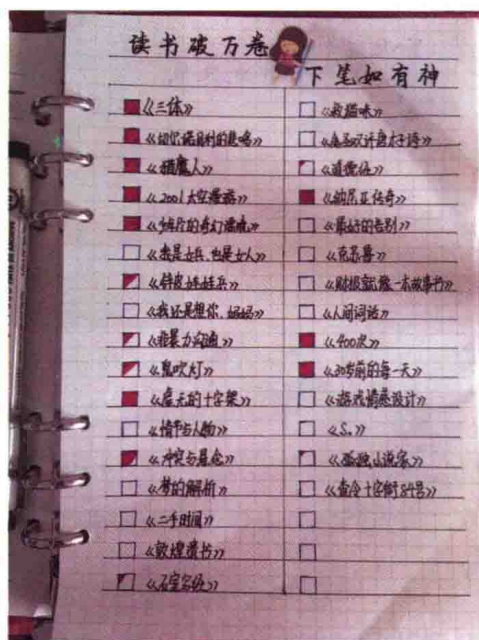 读书破万卷
下笔如有神
《三体》
《切尔诺贝利的悲鸣》
《猎魔人》
《2001太空漫游》
《少年派的奇幻漂流》
《我是女兵,也是女人》
《锌皮娃娃兵》
《我还是想你,妈妈》
《非暴力沟通》
《鬼吹灯》
《虚无的十字架》
《情节与人物》
《冲突与悬念》
《梦的解析》
《二手时间》
《敦煌遗书》
《救猫咪》
《道德经》
《纳尼亚传奇》
《最好的告别》
《克苏鲁》
《财报就像一本故事书》
《人间词话》
《400次》
《30岁前的每一天》
《游戏情感设计》
《S.》
《孤独小说家》
《查令十字街84号》